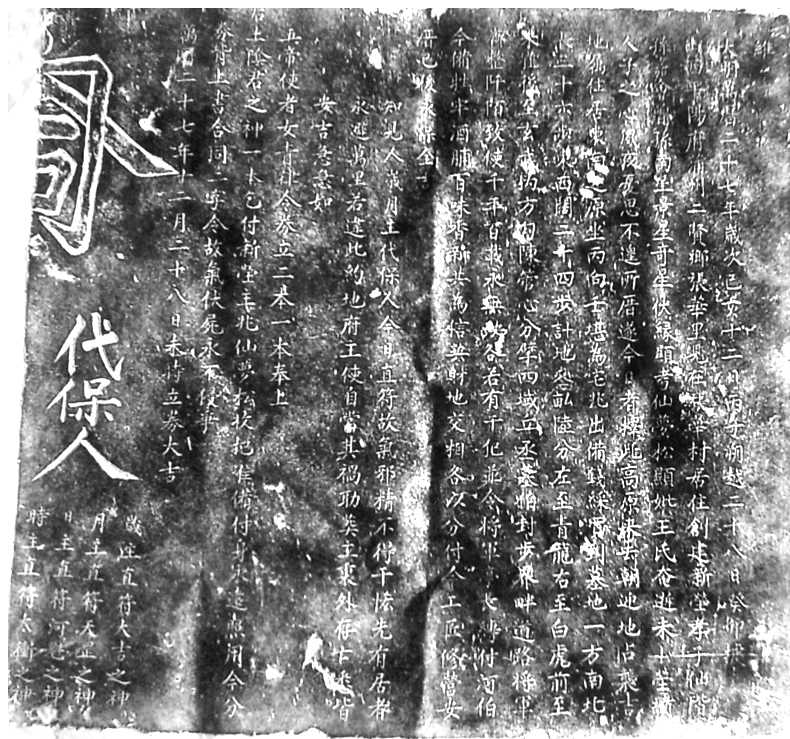 維
大明萬曆二十七年歲次己亥十二月 二十八日癸卯
山西平陽府 州二賢鄉張華里見在 村居住創建新塋孝子仙階
孫 南 景星奇星伏緣顯考仙夢松顯妣王氏奄逝未卜塋墳
人子之心夙夜憂思不遑所厝遂令日者擇此高原來去朝迎地占襲吉
地屬住居東南之原坐丙向壬堪為宅兆出備錢綵買到墓地一方南北
長二十六步東西闊二十四步計地 畝陸分左至青龍右至白虎前至
朱雀後至玄武內方勾陳管心分擘四域丘丞墓伯封步界畔道路將軍
齊整阡陌致使千年百載永無殃咎若有干犯並令將軍 付河伯
今備牲牢酒脯百味香新共為信契財地交相各以分付令工匠修營安
厝已後永保全吉
知見人歲月主代保人今日直符故氣邪精不得干恡先有居者
永避萬里若違此約地府主使自當其禍助葬主裏外存亡悉皆
安吉急急如
五帝使者女青律令券立二本一本奉上
后土陰君之神一本乞付新塋宅兆仙夢松收把准備付身永遠照用今分
券背上書合同二字令故氣伏屍永不侵爭
萬曆二十七年十二月二十八日 立券大吉
代保人
歲主直符大吉之神
月主直符天 之神
日主直符河魁之神
時主直符太衝之神